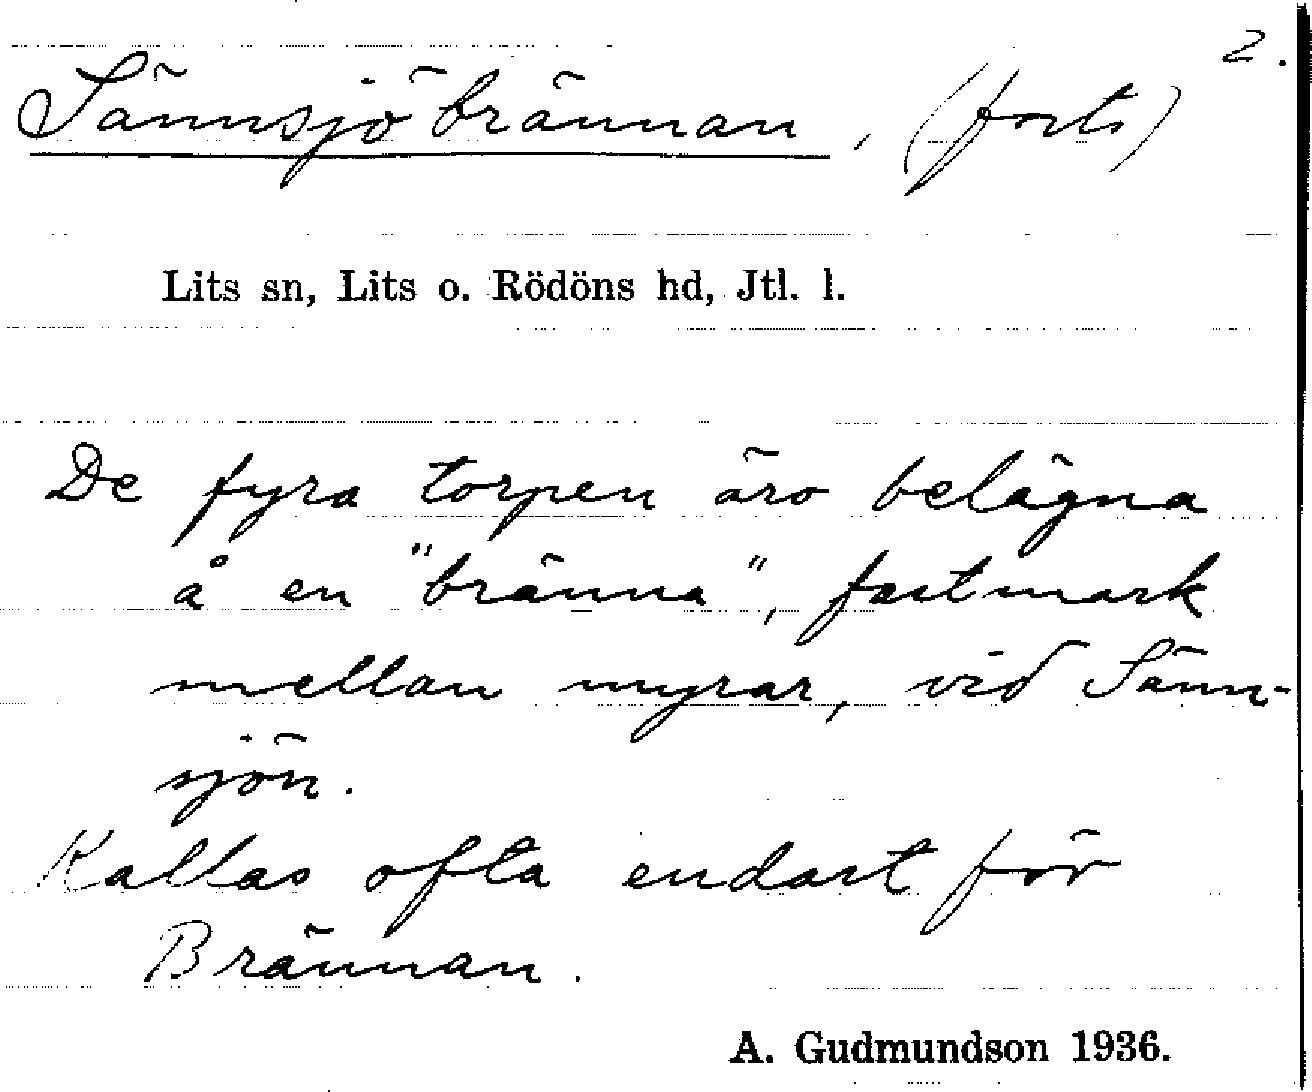 2.
Sännsjöbrännan, (forts)
Lits sn, Lits o. Rödöns hd, Jtl. l.
De fyra torpen äro belägna
å en "bränna", fastmark
mellan myrar, vid Sänn-
sjön.
Kallas ofta endast för
Brännan.
A. Gudmundson 1936.